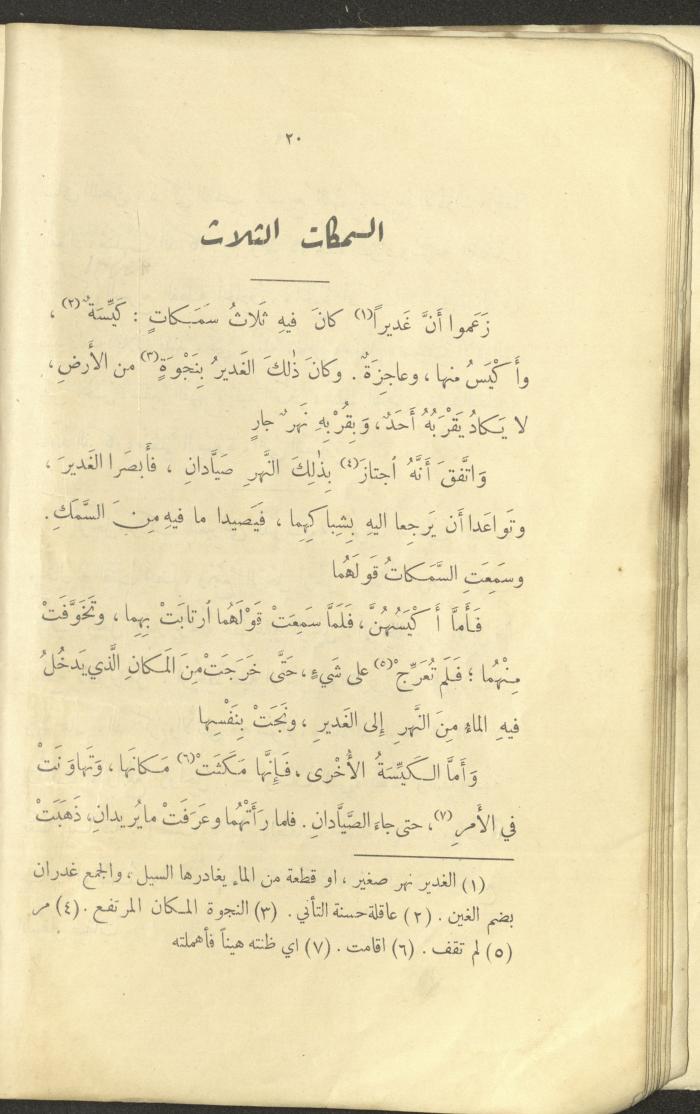 ٢٠
السمكات الثلاث
زَعَموا أَنَّ غَديراً(١) كانَ فيهِ ثَلاثُ سَمَكاتٍ : كَيِّسَةٌ(٢) ،
وأَكْيَسُ منها ، وعاجِزَةٌ . وكانَ ذٰلكَ الغَديرُ بِنَجْوَةٍ(٣) من الأَرضِ ،
لا يَكادُ يَقْرَبُهُ أَحَدٌ ، وَبِقُرْبِهِ نَهرٌ جارٍ
وَاتَّفقَ أَنَّهُ ٱجتازَ(٤) بِذٰلِكَ النَّهرِ صَيَّادانِ ، فأَبصَرا الغَديرَ ،
وتَواعَدا أَن يَرجِعا اليهِ بشِباكِهِما ، فيَصيدا ما فيهِ مِنَ السَّمَكِ .
وسَمِعَتِ السَّمَكاتُ قَولَهُما
فَأَمَّا أَكْيَسُهُنَّ ، فَلَمَّا سَمِعَتْ قَوْلَهُما ٱرتابَتْ بِهِما ، وتَخَوَّفَتْ
مِنْهُما ؛ فَلَم تُعَرِّجْ(٥) على شَيءٍ ، حَتَّى خَرَجَتْ مِنَ المَكانِ الَّذي يَدخُلُ
فيهِ الماءُ مِنَ النَّهرِ إِلى الغَديرِ ، ونَجَتْ بِنَفْسِها
وَأَمَّا الكَيِّسَةُ الأُخْرى ، فَإِنَّها مَكَثَتْ(٦) مَكانَها ، وَتَهاوَنَتْ
في الأَمرِ(٧) ، حتى جاءَ الصَّيَّادانِ . فلما رَأَتْهُما وعَرَفَتْ ما يُريدانِ ، ذَهَبَتْ
(١) الغدير نهر صغير ، او قطعة من الماء يغادرها السيل ، والجمع غدران
بضم الغين . (٢) عاقلة حسنة التأني . (٣) النجوة المكان المرتفع . (٤) مر
(٥) لم تقف . (٦) اقامت . (٧) اي ظنته هيناً فأهملته